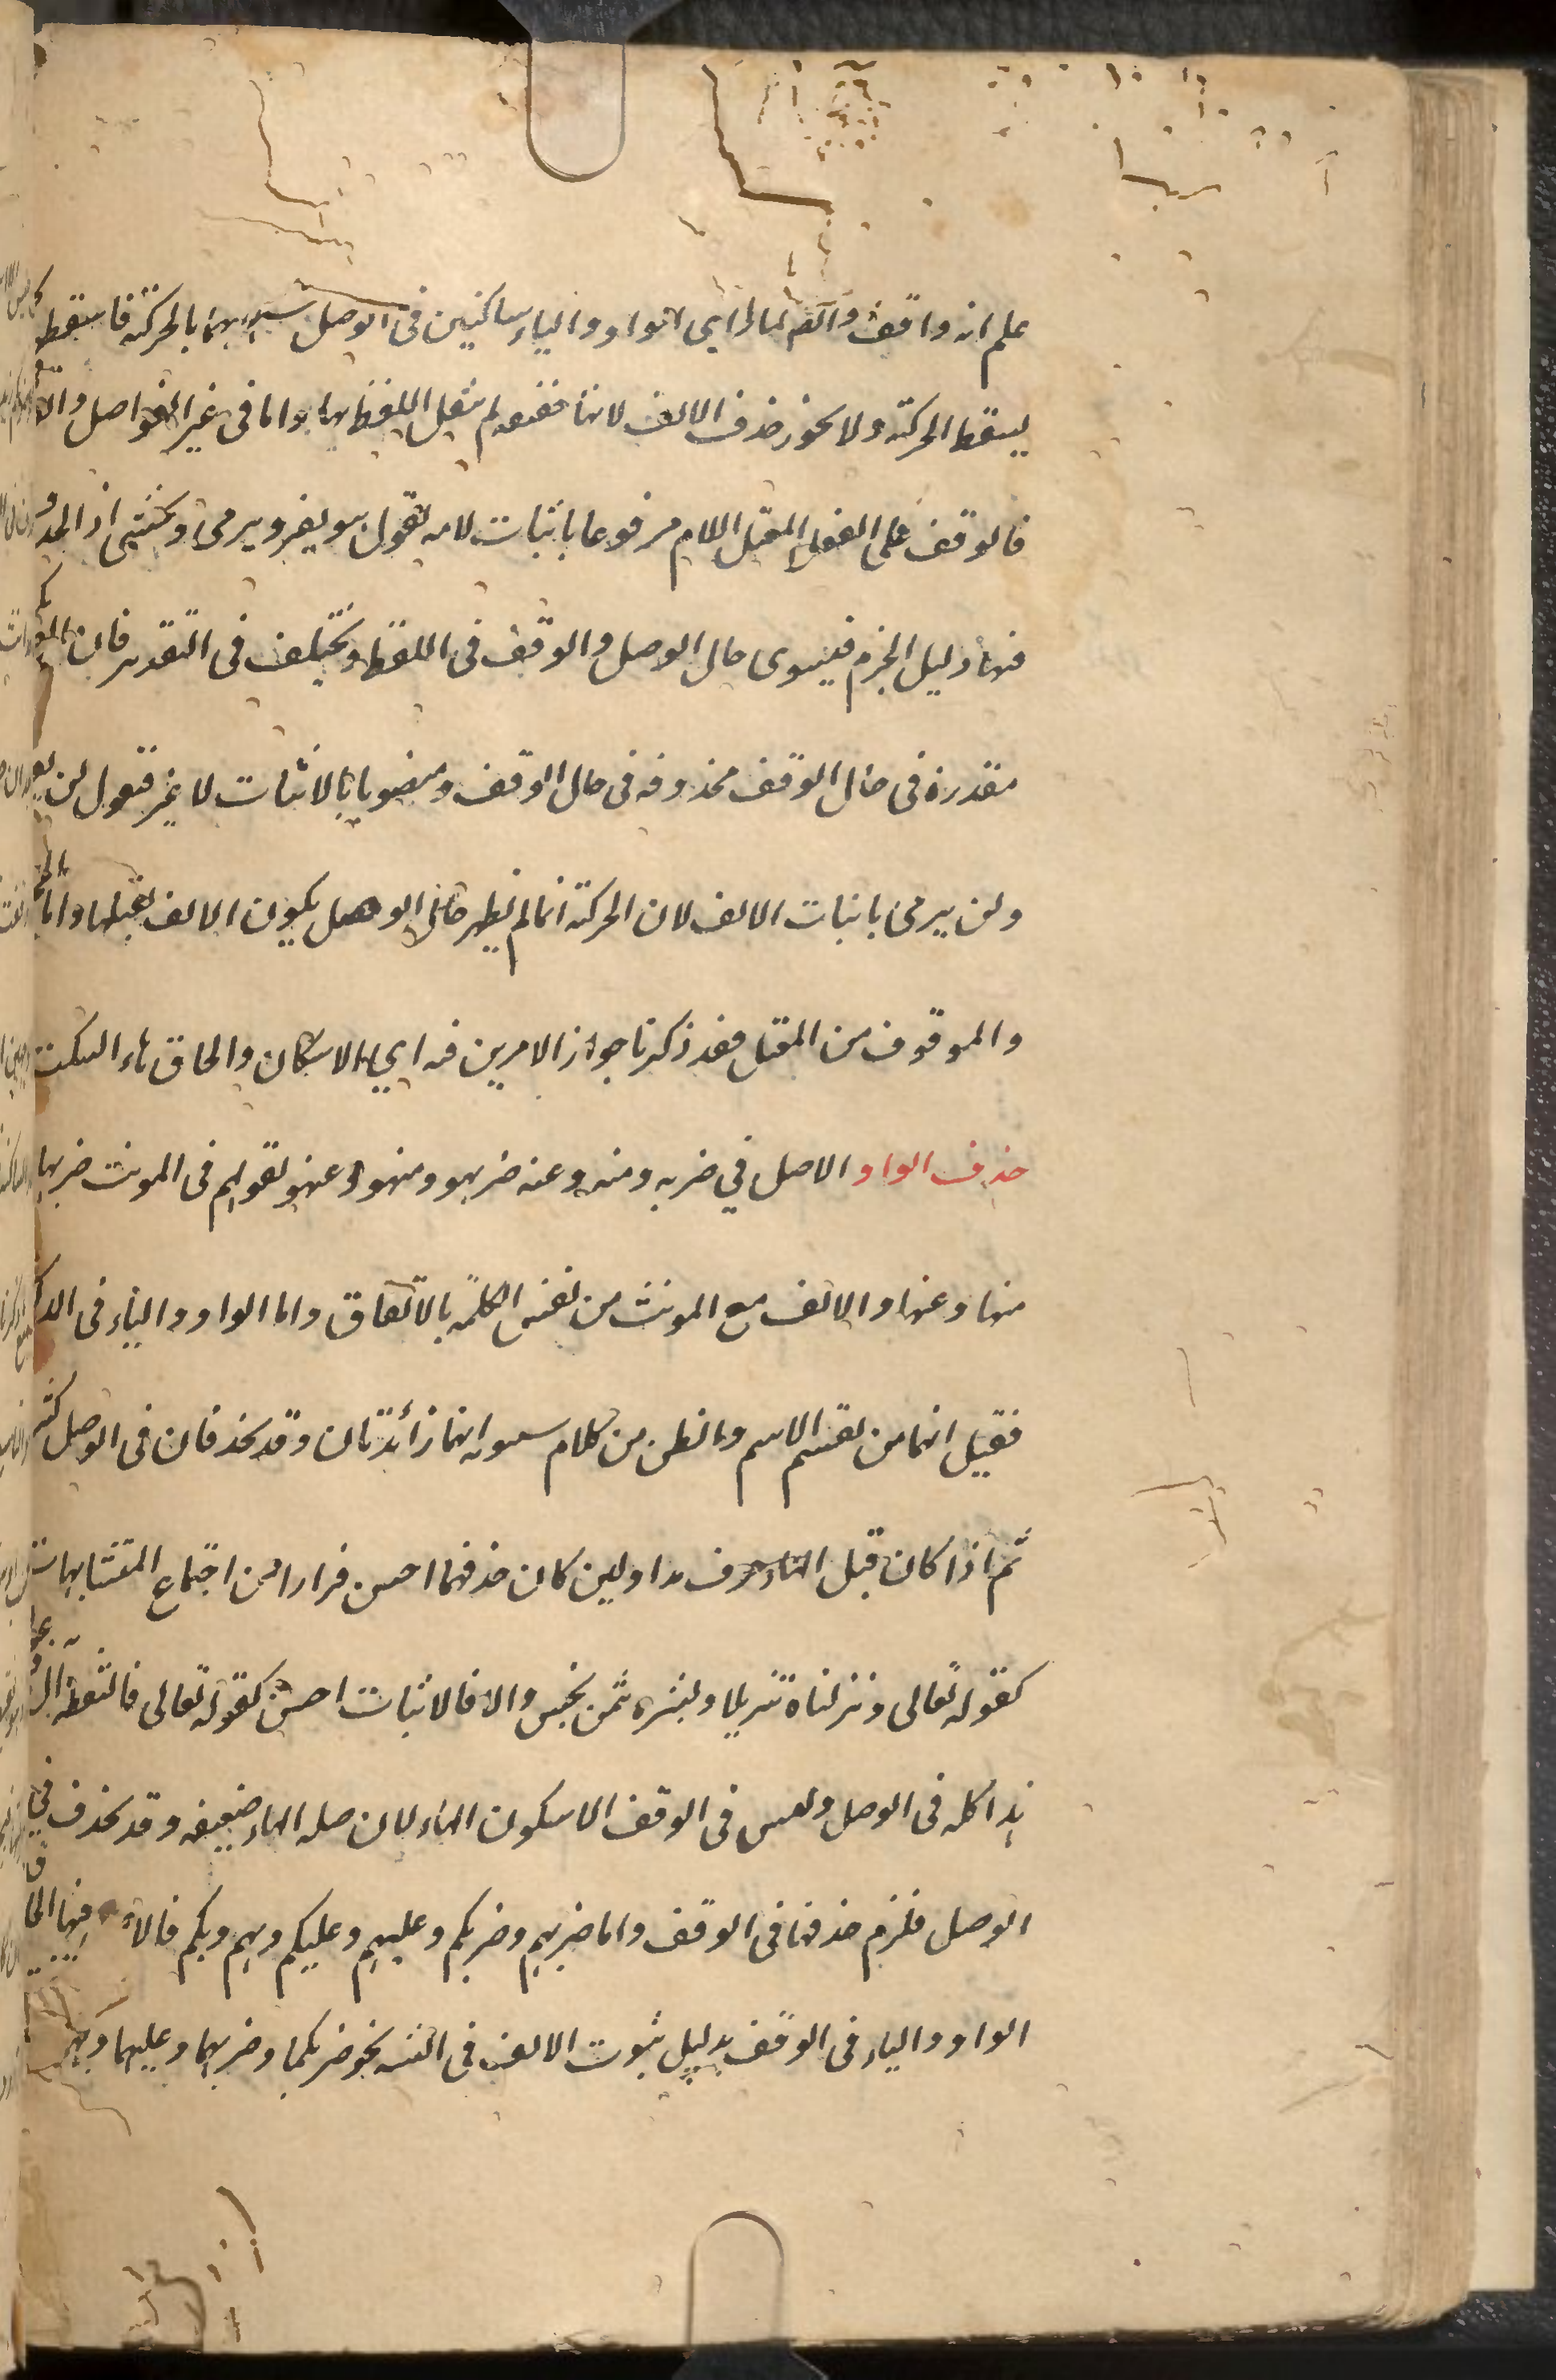 علم انه واقف والضم لما رأى الواو والياء ساكنين فى الوصل شبههما بالحركة فاسقط
ليسقط الحركة ولا يجوز حذف الالف لانها خفيفه لم يثقل اللفظ بها واما فى غير الفواصل
فالوقف على الفعل المعتل اللام مرفوعا باثبات لامه تقول هو يغزو ويرمى ويخشى اذ الحذف
فيها دليل الجزم فيسوى حال الوصل والوقف فى اللفظ ويختلف فى التقدير فان
مقدرة فى حال الوقف محذوفه فى حال الوقف ومنصوبا بالاثبات لا غير فتقول لن
ولن يرمى باثبات الالف لان الحركة انما لم يظهر حال الوصل يكون الالف لا يقبلها واما
والموقوف من المعتل فقد ذكرنا جواز الامرين فيه اي الاسكان والحاق هاء السكت
حذف الواو الاصل في ضربه ومنه وعنه ضربهو ومنهو وعنهو لقولهم فى المونث ضربها
منها وعنها والالف مع المونث من نفس الكلمة بالاتفاق واما الواو والياء فى
فقيل انهما من نفس الاسم والظن من كلام سيبويه انهما زائدتان وقد يحذفان فى الوصل كثير
ثم اذا كان قبل الهاء حرف مد او لين كان حذفهما احسن فرارا من اجتماع المتشابهات
كقوله تعالى ونزلناه تنزيلا وشروه بثمن بخس والا فالاثبات احسن كقوله تعالى فالتقطه آل
هذا كله فى الوصل وليس فى الوقف الا سكون الهاء لان صله الهاء ضعيفه وقد يحذف في
الوصل فلزم حذفها فى الوقف واما ضربهم وضربكم وعليهم وعليكم وبهم وبكم فالا فيها الحاق
الواو والياء فى الوقف بدليل ثبوت الالف فى التثنيه نحو ضربكما وضربهما وعليهما